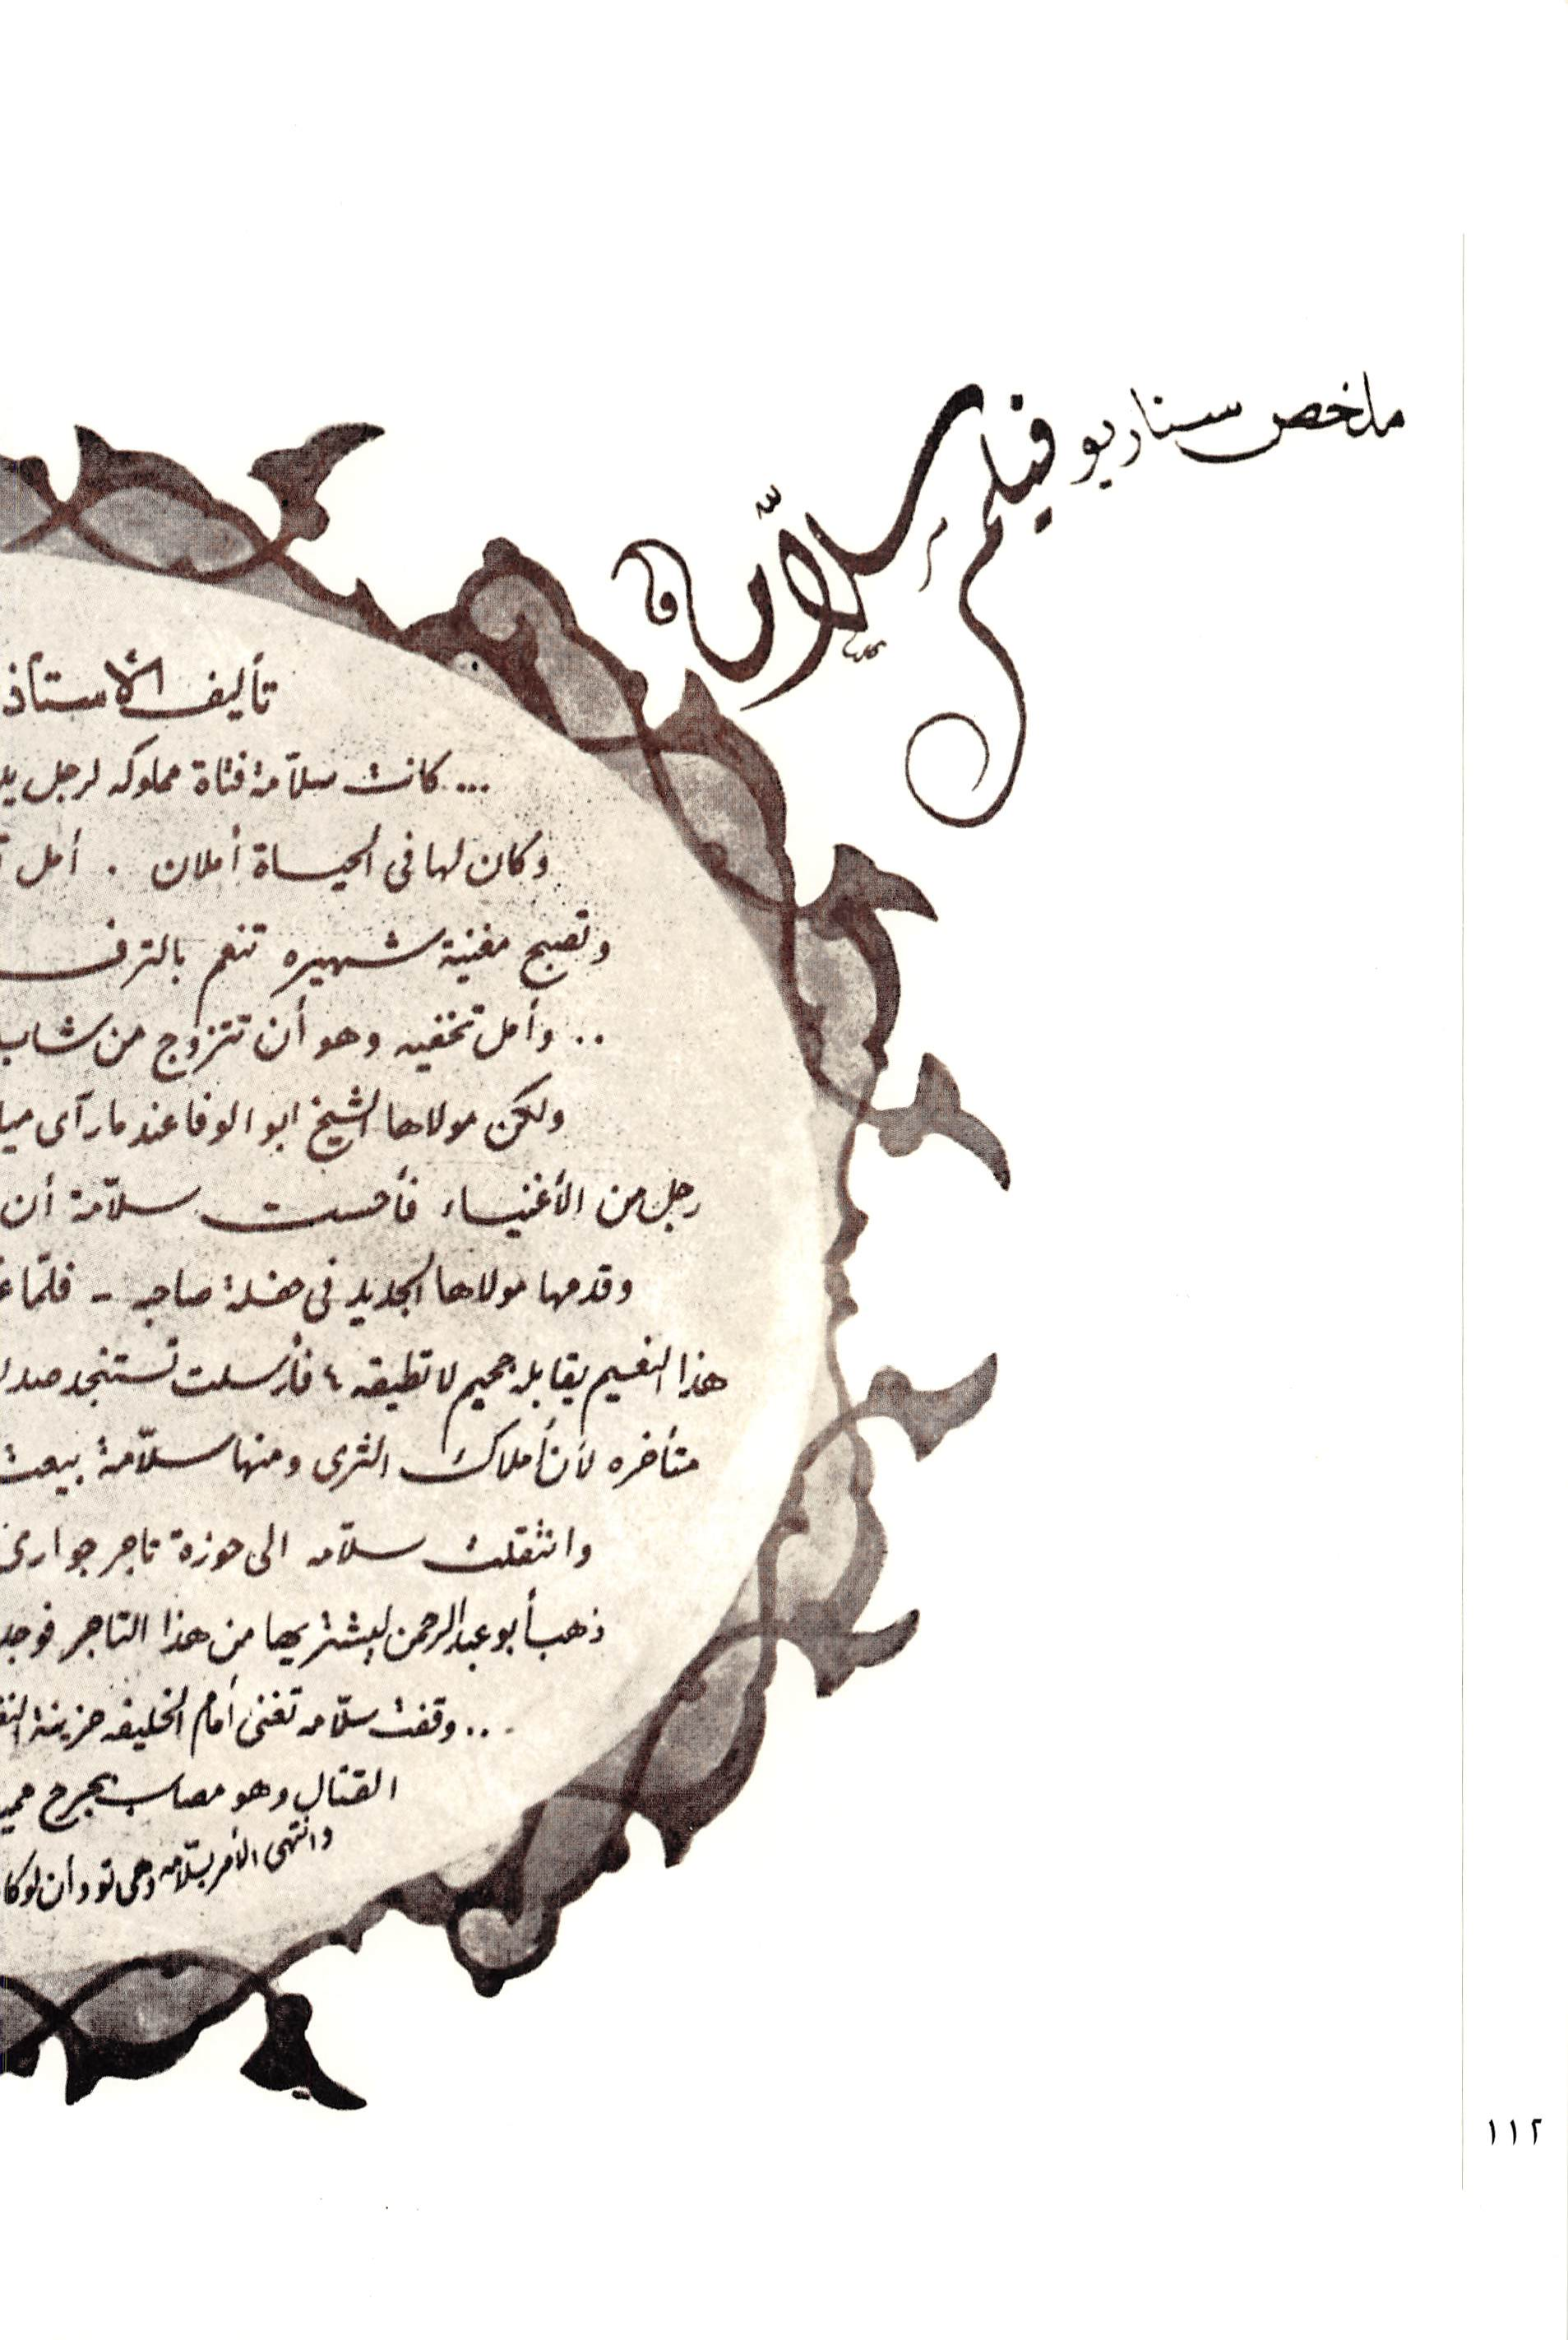 ملخص سناريو فيلم
سلامة
تأليف الأستاذ
... كانت سلّامة فتاة مملوكه لرجل
وكان لها فى الحياة أملان . أمل
وتصبح مغنية شهيره تنعم بالترف
.. وأمل تخفيه وهو أن تتزوج من شاب
ولكن مولاها الشيخ ابو الوفا عندما رآى
رجل من الأغنياء فأحست سلاّمة أن
وقدمها مولاها الجديد فى حفلة صاجه - فلمّا
هذا النعيم يقابله جحيم لا تطيقه ، فأرسلت تستنجد
متأخره لأن أملاك الثرى ومنها سلاّمة بيعت
وانتقلت سلاّمه الى حوزة تاجر جوارى
ذهب أبو عبد الرحمن ليشتريها من هذا التاجر فوجد
... وقفت سلاّمه تغنى أمام الخليفه حزينة
القتال وهو مصاب بجرح
وانتهى الأمر بسلاّمه وهى تود أن لو
١١٢